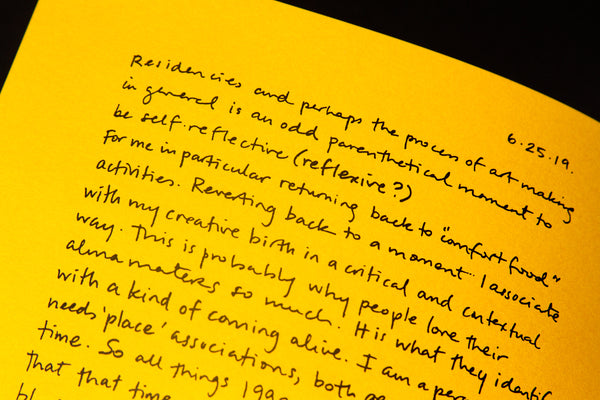 6.25.19.
Residencies and perhaps the process of art making
in general is an odd parenthetical moment to
be self-reflective (reflexive?)
For me in particular returning back to "comfort food"
activities. Reverting back to a moment I associate
with my creative birth in a critical and contextual
way. This is probably why people love their
alma maters so much. It is what they identif
with a kind of coming alive. I am a per
needs 'place' associations, both
time. So all things 199
that that time